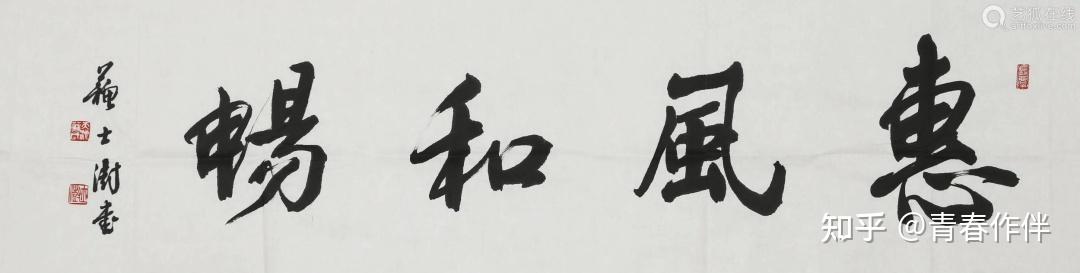 惠風和暢
蘇士澍書
艺狐在线
artfoxlive.com
知乎 @青春作伴